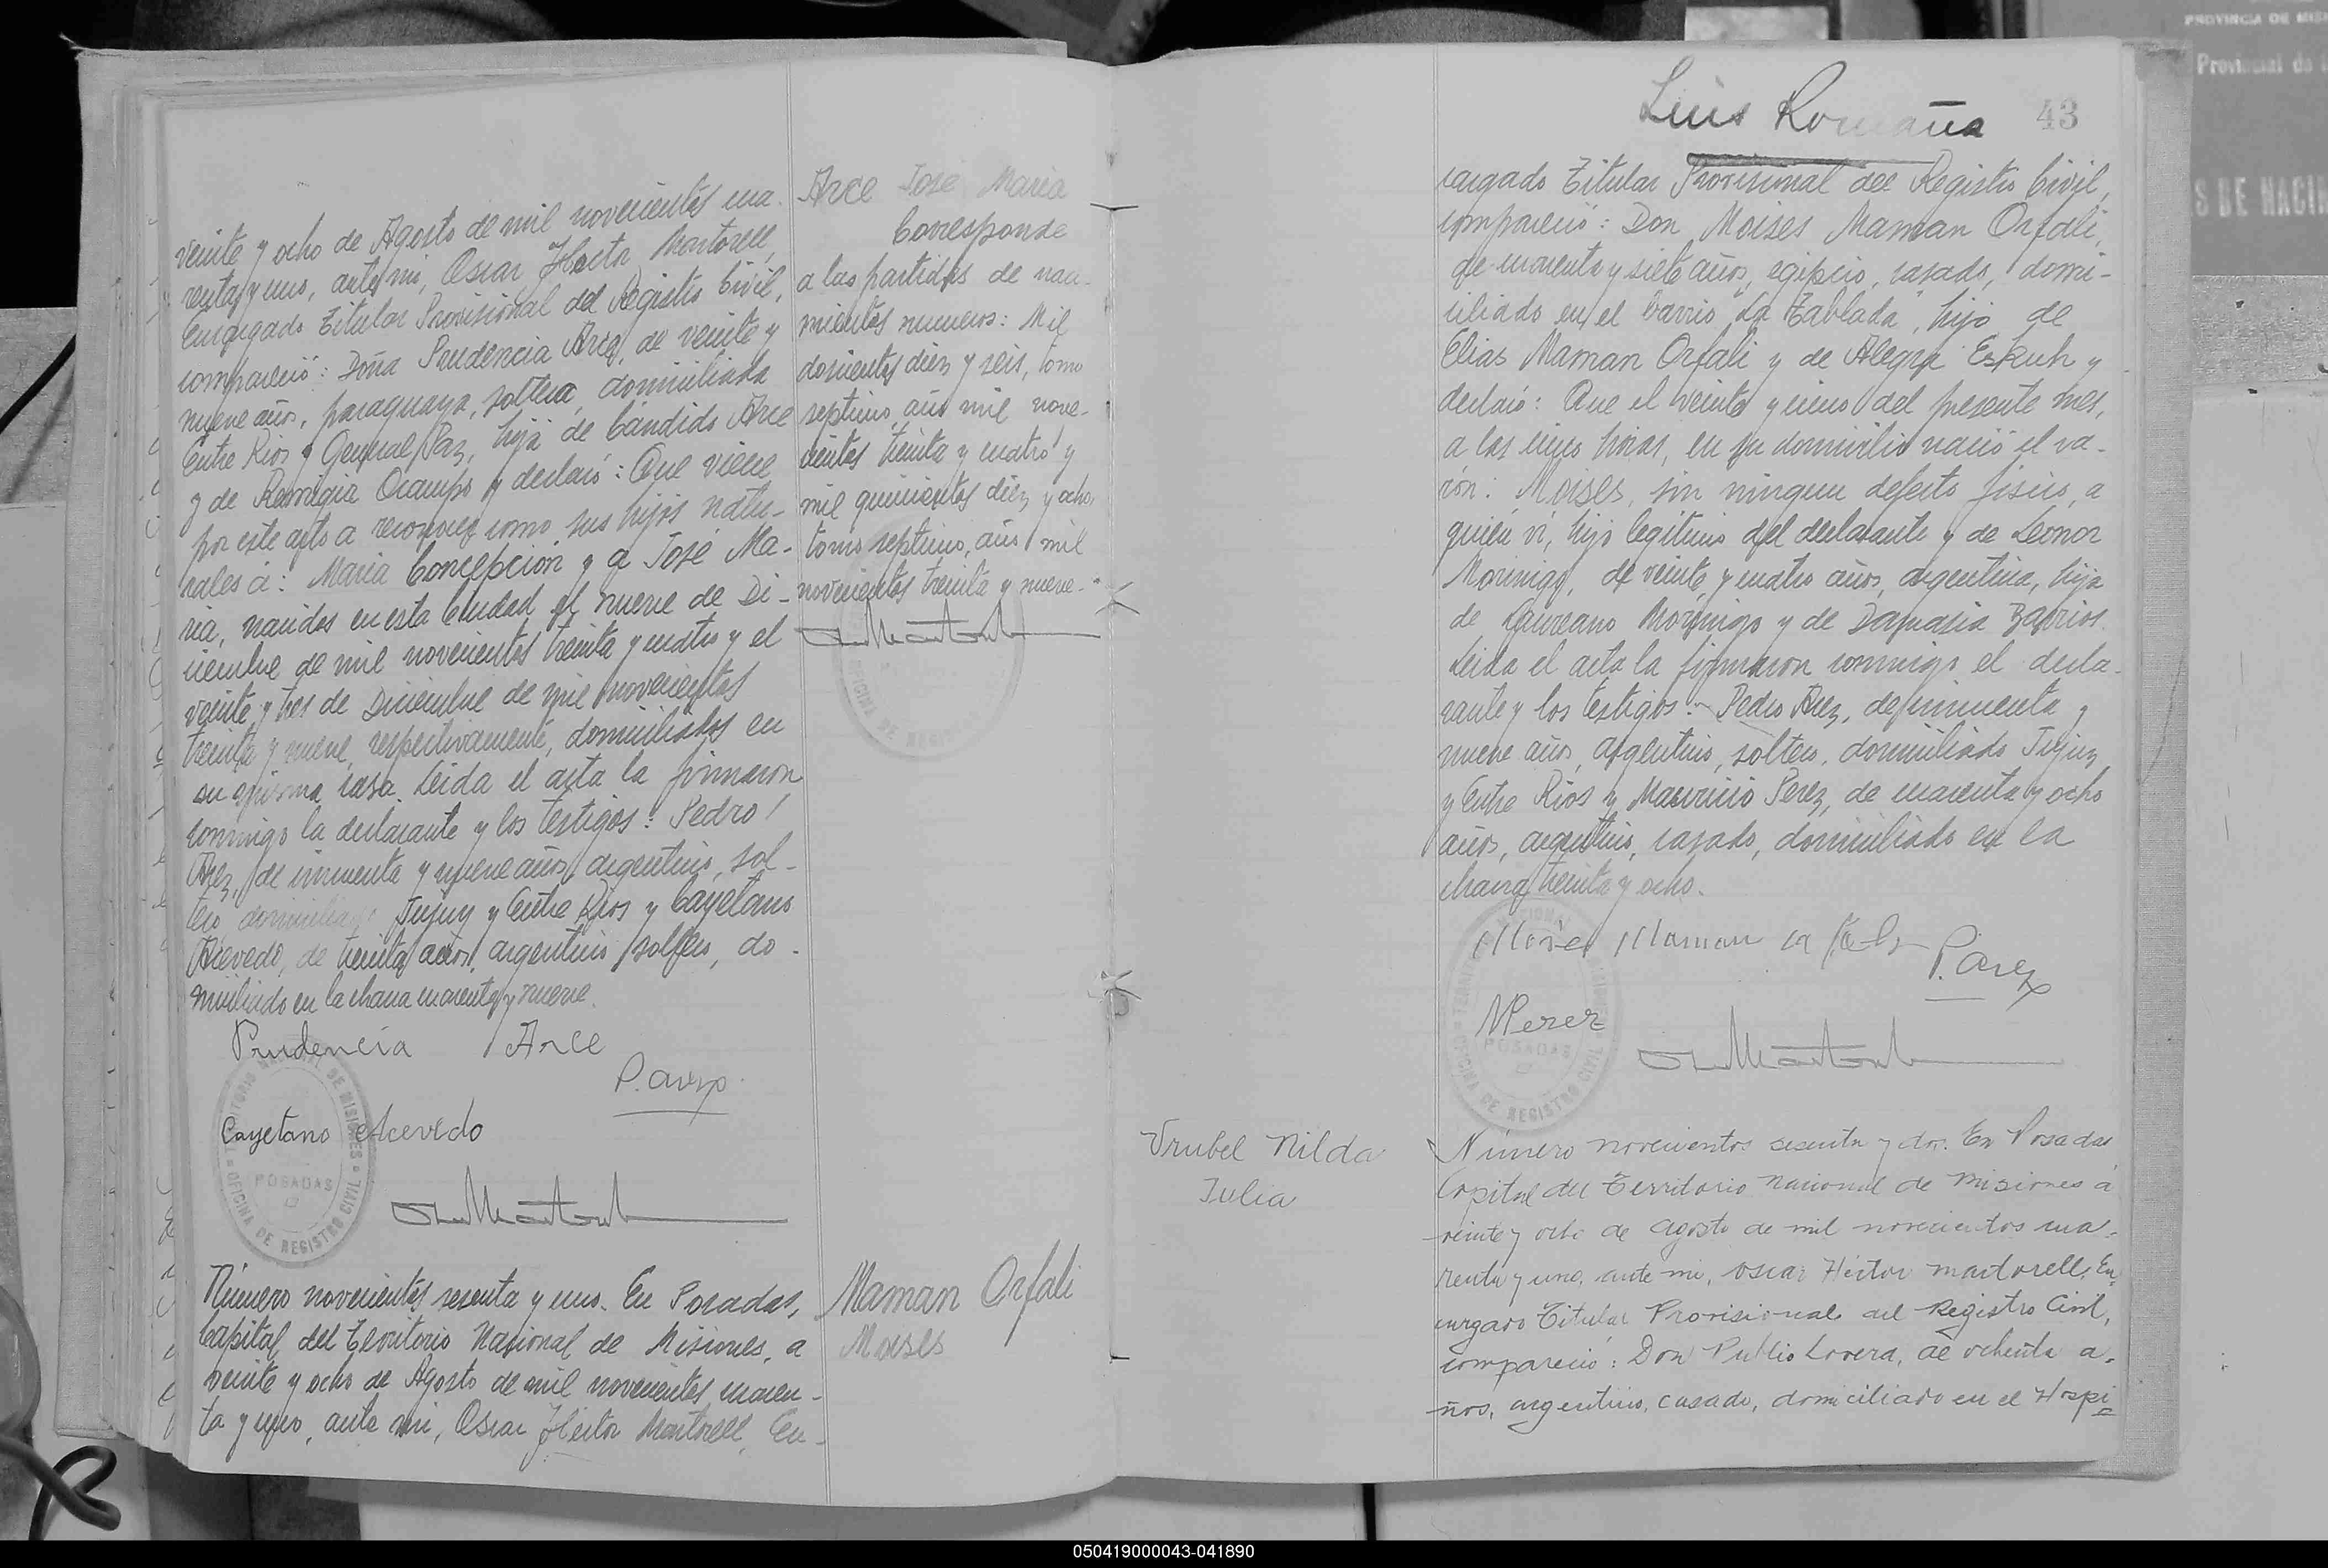 veinte y ocho de Agosto de mil novecientos cua-
renta y uno, ante mi, Oscar Héctor Martorell,
Encargado Titular Provisional del Registro Civil,
compareció: Doña Prudencia Arce, de veinte y
nueve años, paraguaya, soltera, domiciliada
Entre Rios y General Paz, hija de Cándido Arce
y de Remigia Ocampo y declaró: Que viene
por este acto a reconocer como sus hijos natu-
rales a: Maria Concepción y a José Ma-
ria, nacidos en esta Ciudad el nueve de Di-
ciembre de mil novecientos treinta y cuatro y el
veinte y tres de Diciembre de mil novecientos
treinta y nueve, respectivamente, domiciliados en
su misma casa. Leida el acta la firmaron
conmigo la declarante y los testigos: Pedro
Arez, de cincuenta y nueve años, argentino, sol-
tero, domiciliado Jujuy y Entre Rios y Cayetano
Acevedo, de treinta años, argentino, soltero, do-
miciliado en la chacra cuarenta y nueve.
Prudencia Arce
P. Arez
Cayetano Acevedo
TERRITORIO NACIONAL DE MISIONES
POSADAS
OFICINA DE REGISTRO CIVIL
Número novecientos sesenta y uno. En Posadas,
Capital del Territorio Nacional de Misiones, a
veinte y ocho de Agosto de mil novecientos cuaren-
ta y uno, ante mi, Oscar Héctor Martorell, En-
Arce José Maria
Corresponde
a las partidas de naci-
mientos numeros: Mil
doscientos diez y seis, tomo
septimo, año mil nove-
cientos treinta y cuatro y
mil quinientos diez y ocho,
tomo septimo, año mil
novecientos treinta y nueve.-
OFICINA DE REGIS
Maman Orfali
Moises
Luis Romaña
43
cargado Titular Provisional del Registro Civil,
compareció: Don Moises Maman Orfali,
de cuarenta y siete años, egipcio, casado, domi-
ciliado en el barrio "La Tablada", hijo de
Elias Maman Orfali y de Alegra Eskuh y
declaró: Que el veinte y cinco del presente mes,
a las cinco horas, en su domicilio nació el va-
rón: Moises, sin ningun defecto fisico, a
quien vi, hijo legitimo del declarante y de Leonor
Morinigo, de veinte y cuatro años, argentina, hija
de Laureano Morinigo y de Damasia Barrios.
Leida el acta la firmaron conmigo el decla-
rante y los testigos: Pedro Arez, de cincuenta y
nueve años, argentino, soltero, domiciliado Jujuy
y Entre Rios y Mauricio Perez, de cuarenta y ocho
años, argentino, casado, domiciliado en la
chacra treinta y ocho.
P. Arez
M Perez
POSADAS
OFICINA DE REGISTRO CIVIL
Vrubel Nilda
Julia
Número novecientos sesenta y dos. En Posadas
Capital del Territorio Nacional de Misiones a
veinte y ocho de Agosto de mil novecientos cua-
renta y uno, ante mi, Oscar Héctor Martorell, En-
cargado Titular Provisional del Registro Civil,
compareció: Don Publio Lovera, de ochenta a-
ños, argentino, casado, domiciliado en el Hospi-
PROVINCIA DE MIS
Provincial de
S DE NACIM
050419000043-041890